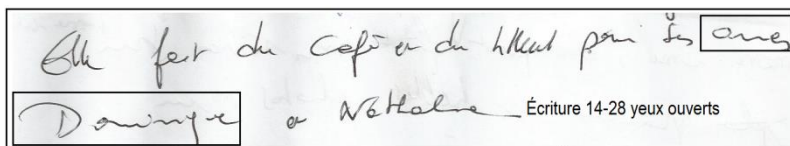 Elle fait du Café et du thé pour ses amies
Dominique et Nathalie Écriture 14-28 yeux ouverts